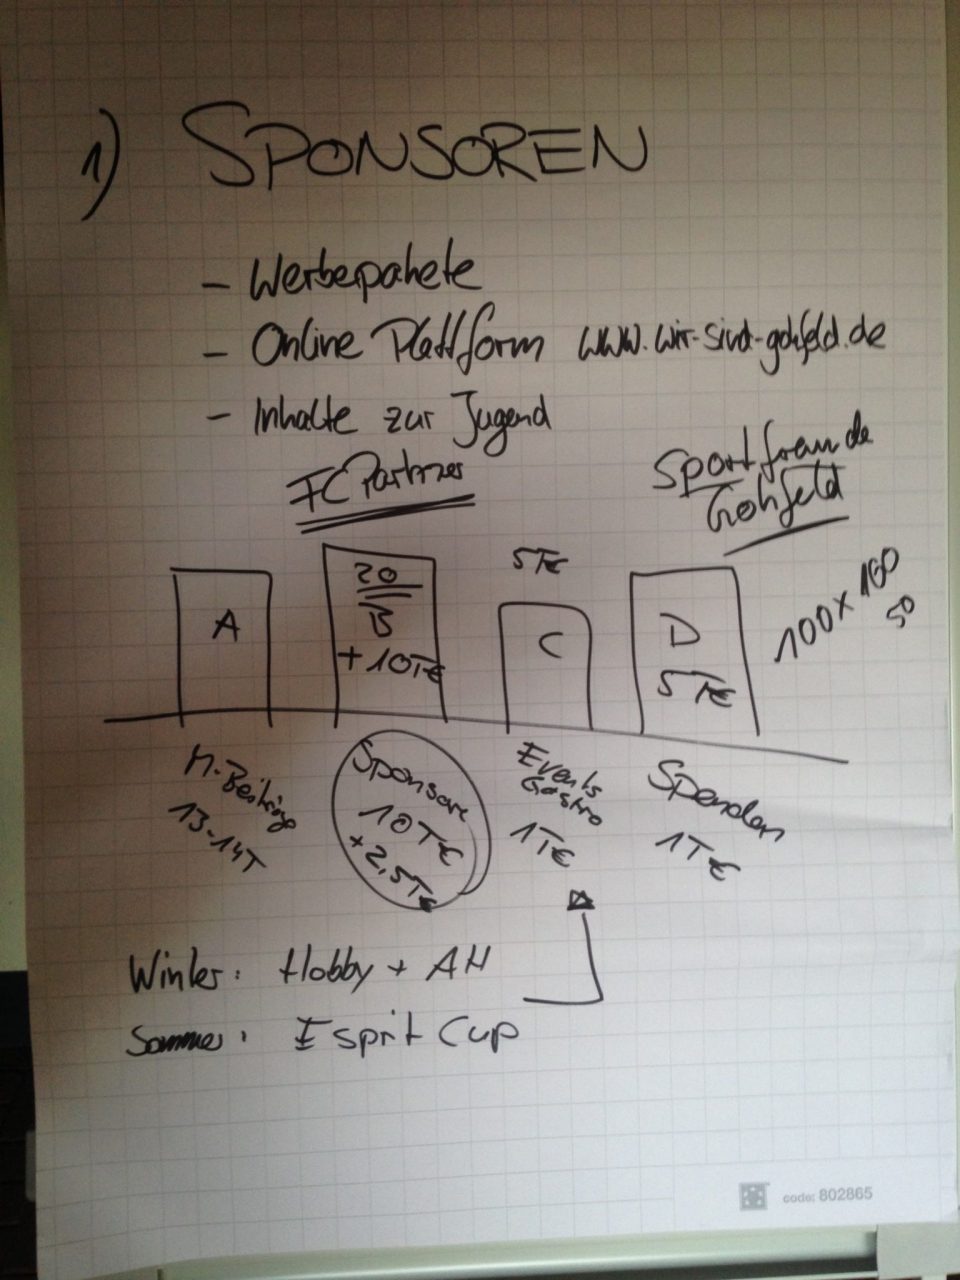 1) SPONSOREN
- Werbepakete
- Online Plattform www.wir-sind-gohfeld.de
- Inhalte zur Jugend
FC Partner
Sportfreunde
Gohfeld
A
20
B
+ 10T€
5T€
C
D
5T€
100 x 100
50
M-Beiträge
13-14T
Sponsoren
10T€
+2,5T€
Events
Gastro
1T€
Spenden
1T€
Winter: Hobby + AH
Sommer: Esprit Cup
code: 802865